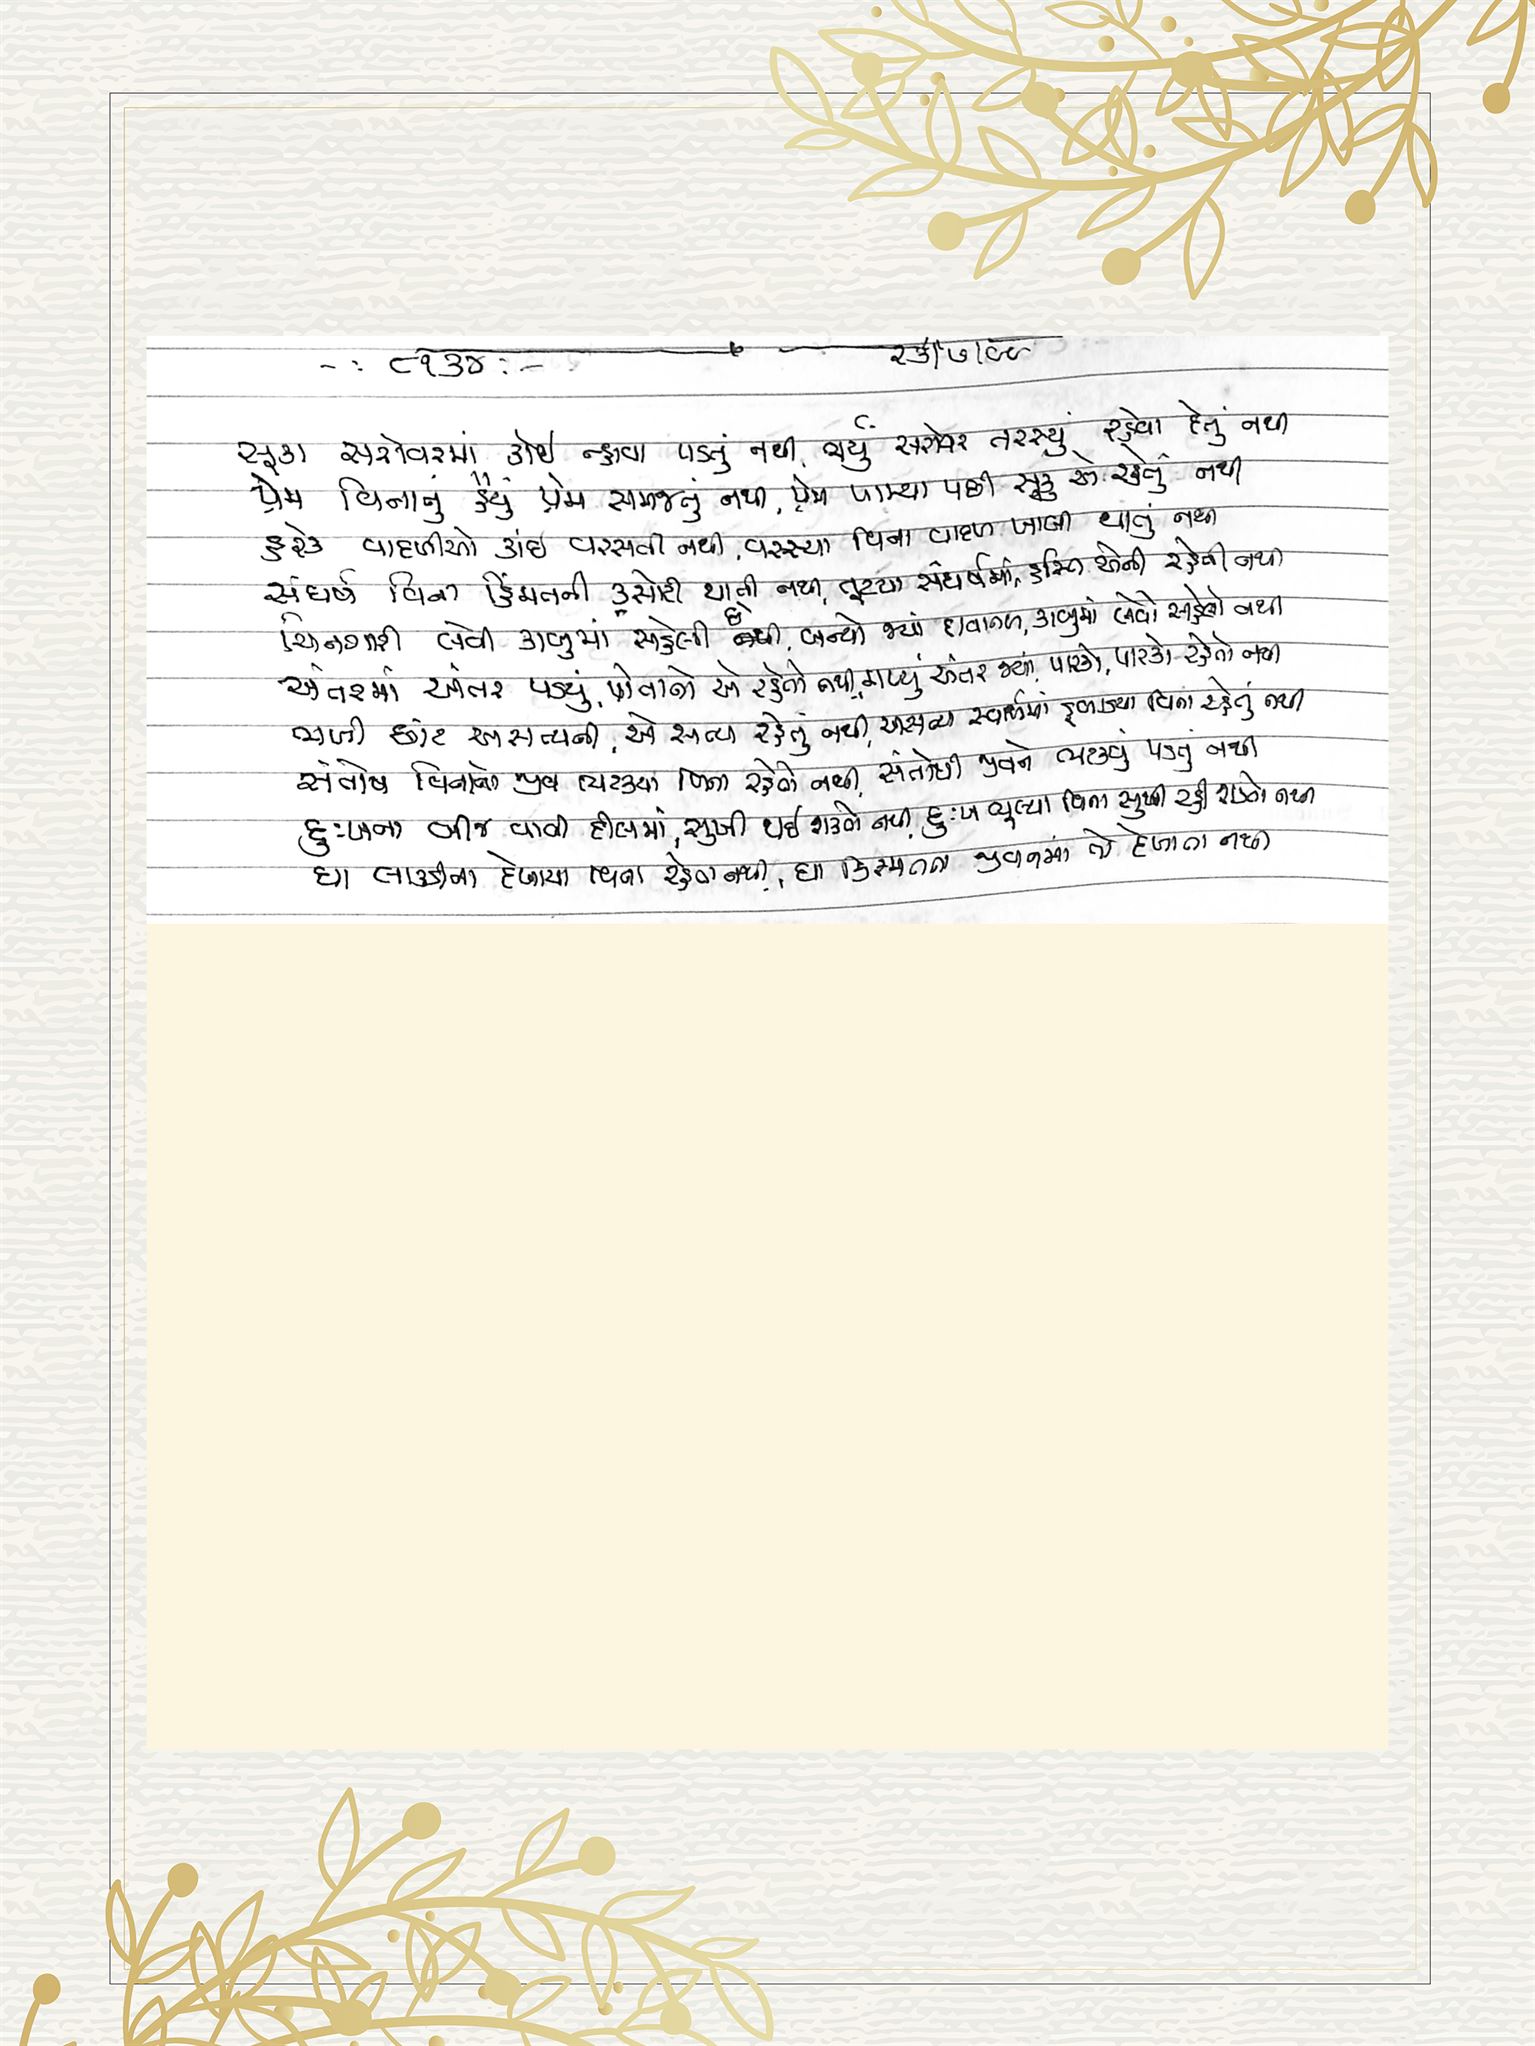 -: ૮૧૩૪ :-
સૂકા સરોવરમાં કોઈ ન્હાવા પડતું નથી, ભર્યું સરોવર તરસ્યું રહેવા દેતું નથી
પ્રેમ વિનાનું હૈયું પ્રેમ સમજતું નથી, પ્રેમ પામ્યા પછી સૂકુ એ રહેતું નથી
હરેક વાદળીઓ કાંઈ વરસતી નથી, વરસ્યા વિના વાદળ ખાલી થાતું નથી
સંઘર્ષ વિના હિંમતની કસોટી થાતી નથી, તૂટયા સંઘર્ષમાં, હસ્તિ એની રહેતી નથી
ચિનગારી લેવી કાબુમાં સહેલી છે, બન્યો જ્યાં દાવાનળ, કાબુમાં લેવો સહેલો નથી
અંતરમાં અંતર પડયું, પોતાનો એ રહેતો નથી, ગપ્યું અંતર જ્યાં, પારકો, પારકો રહેતો નથી
ભળી છાંટ અસત્યની, એ સત્ય રહેતું નથી, અસત્ય સ્વાર્થમાં વિના રહેતું નથી
સંતોષ વિનાનો જીવ ભટકયા વિના રહેતો નથી, સંતોષી જીવને ભટકવું પડતું નથી
દુઃખના બીજ વાવી દીલમાં, સુખી થઈ શકતો નથી, દુઃખ ભૂલ્યા વિના સુખી રહી શકતો નથી
ઘા લાકડીના દેખાયા વિના રહેતા નથી, ઘા કિસ્મતના જીવનમાં તો દેખાતા નથી